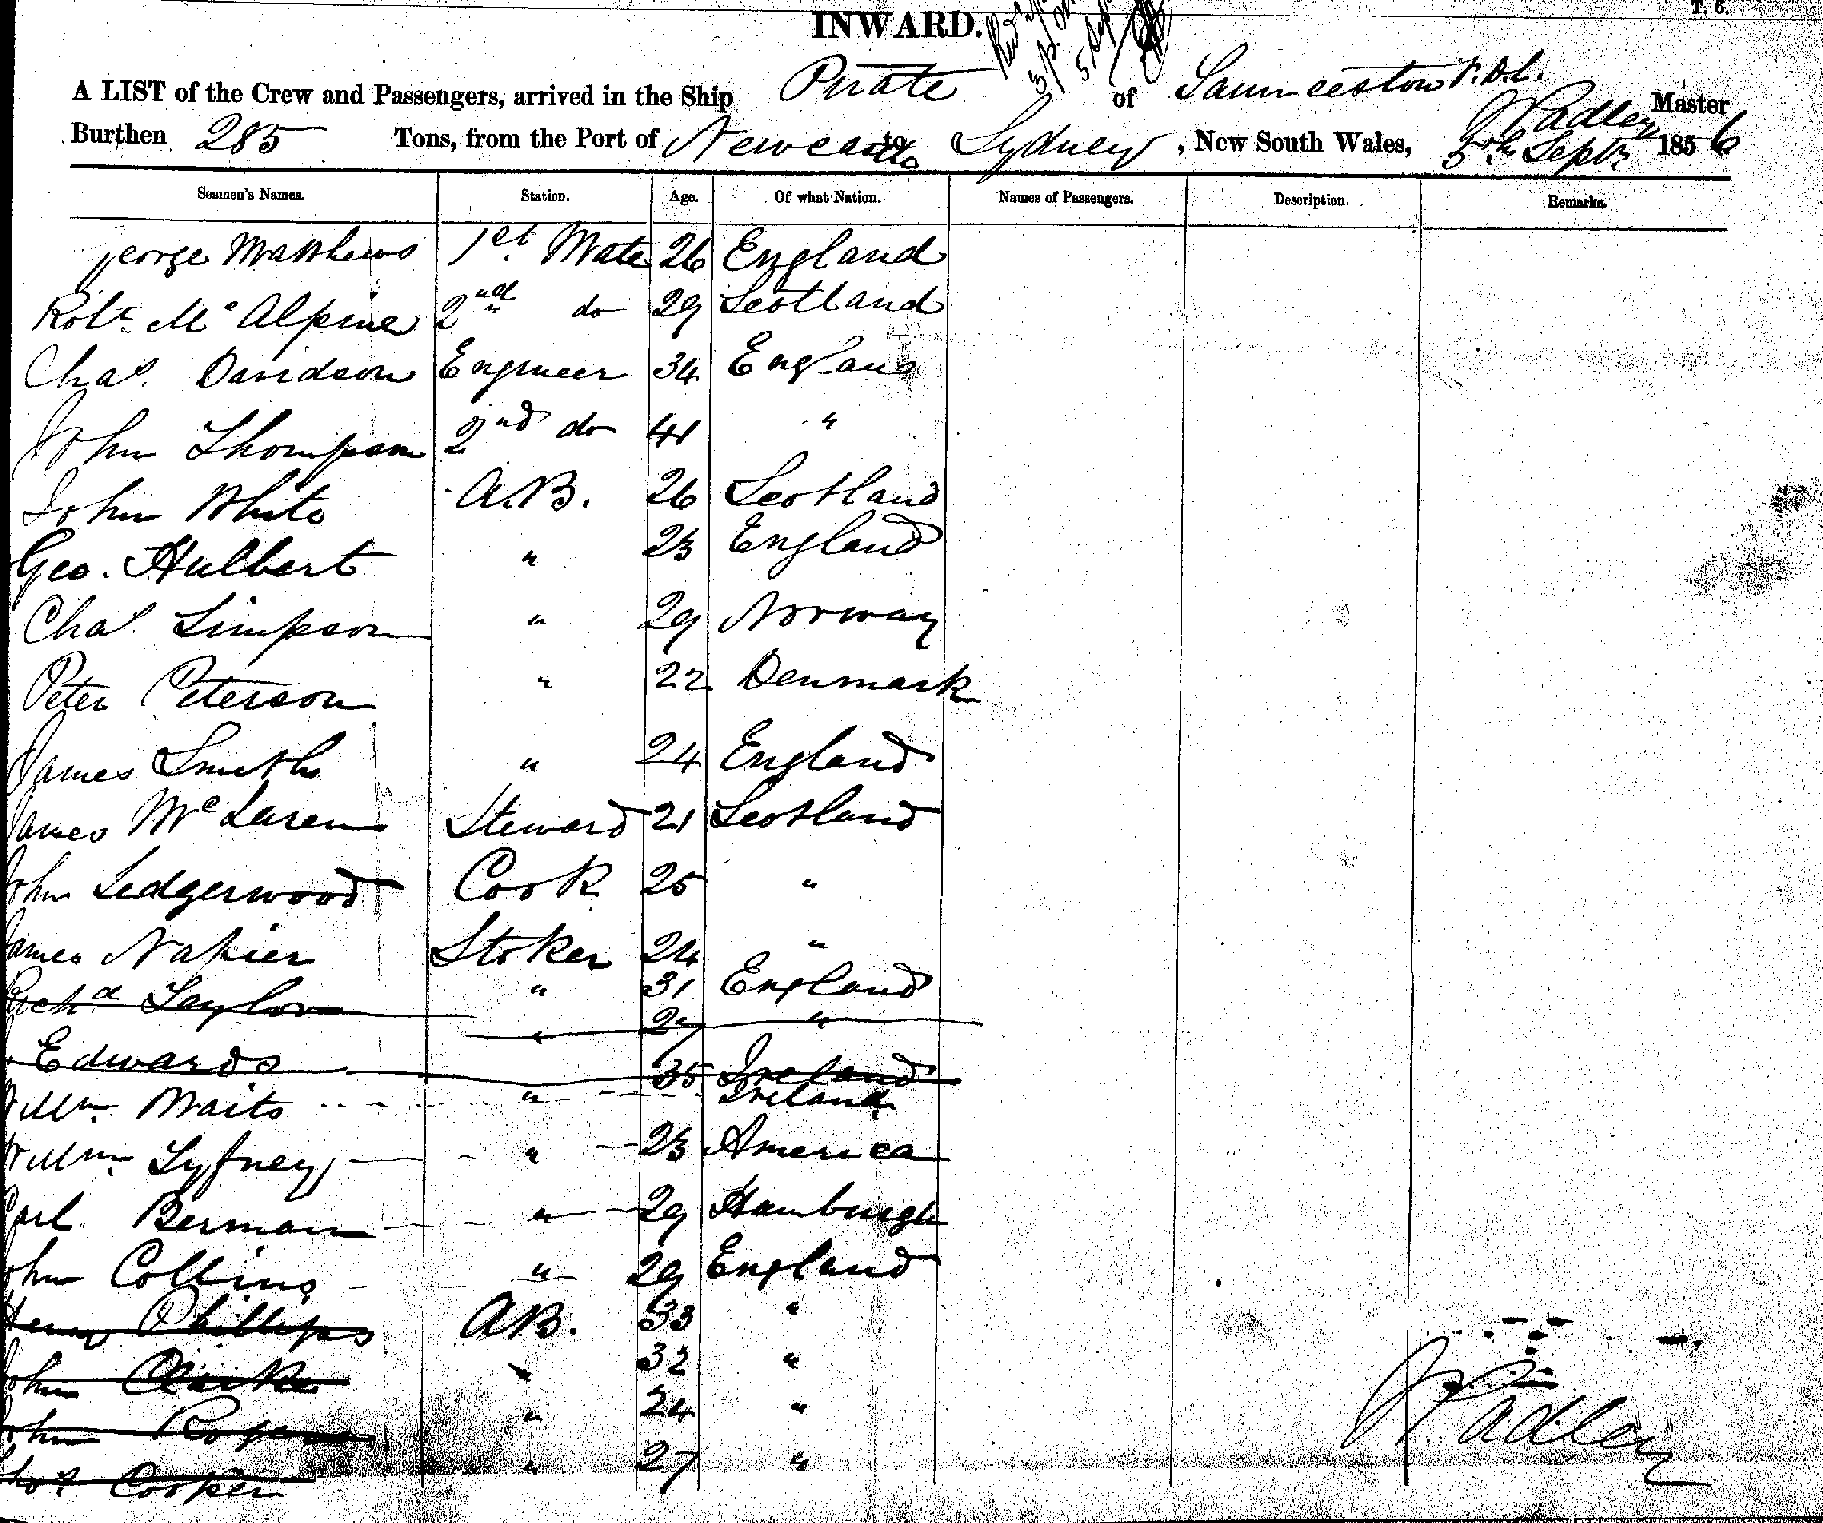 T. 6.
INWARD.
A LIST of the Crew and Passengers, arrived in the Ship Pirate of Launceston V.D.L.
Burthen 285 Tons, from the Port of Newcastle to Sydney, New South Wales, Padley Master
5th Septr 1856
Seamen's Names. Station. Age. Of what Nation. Names of Passengers. Description. Remarks.
George Matthews 1st Mate 26 England
Robt McAlpine 2nd do 29 Scotland
Chas. Davidson Engineer 34 England
John Thompson 2nd do 41 "
John White A.B. 26 Scotland
Geo. Hulbert " 23 England
Chas. Simpson " 29 Norway
Peter Peterson " 22 Denmark
James Smith " 24 England
James McLaren Steward 21 Scotland
John Ledgerwood Cook 25 "
James Napier Stoker 24 "
Richd Taylor " 31 England
Edwards " 27 "
35 Ireland
Willm Waits " Ireland
Willm Lyfney " 23 America
Carl Berman " 29 Hamburgh
John Collins " 29 England
Henry Phillips AB. 33 "
John Clarke " 32 "
John Rogers " 24 "
Thos Cooper " 27 "
Padley